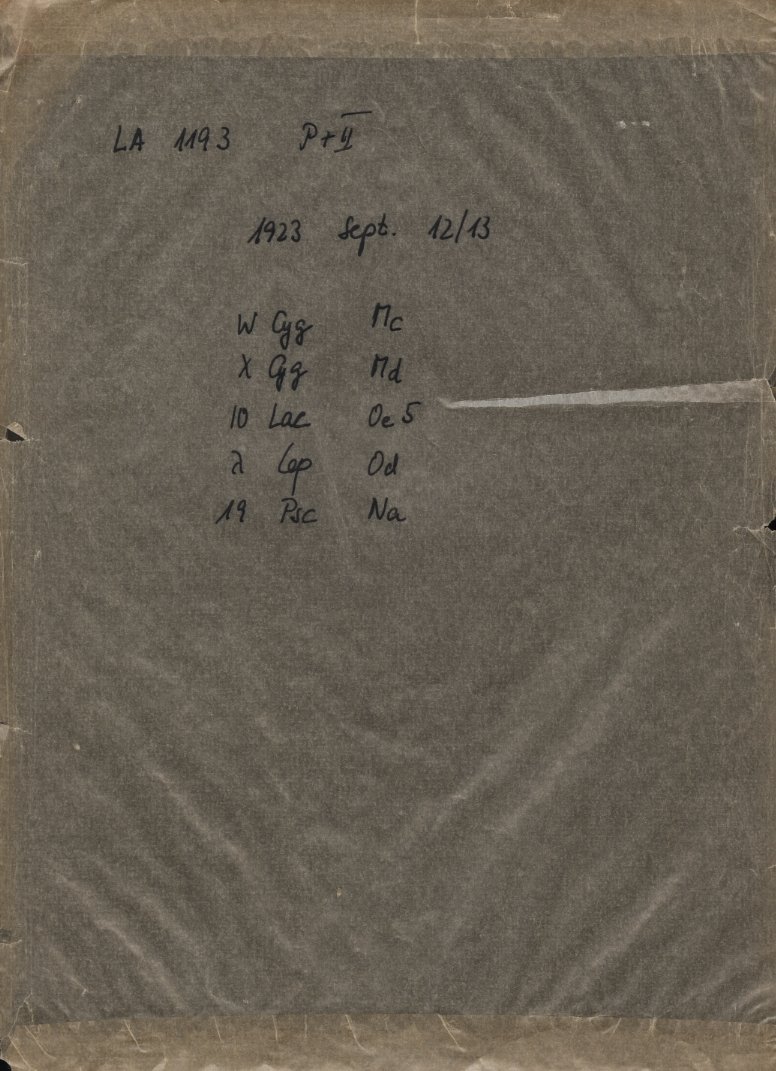 LA 1193 P+II
1923 Sept. 12/13
W Cyg Mc
X Cyg Md
10 Lac Oe 5
λ Cep Od
19 Psc Na